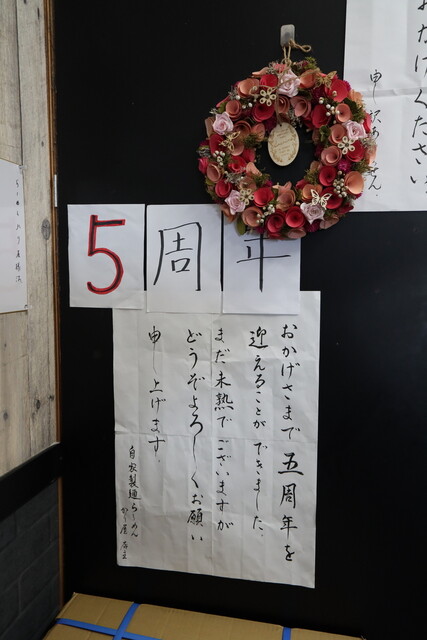 おかけください
申し訳ありません。
5周年
おかげさまで五周年を
迎えることができました。
まだ未熟でございますが
どうぞよろしくお願い
申し上げます。
自家製麺らーめん